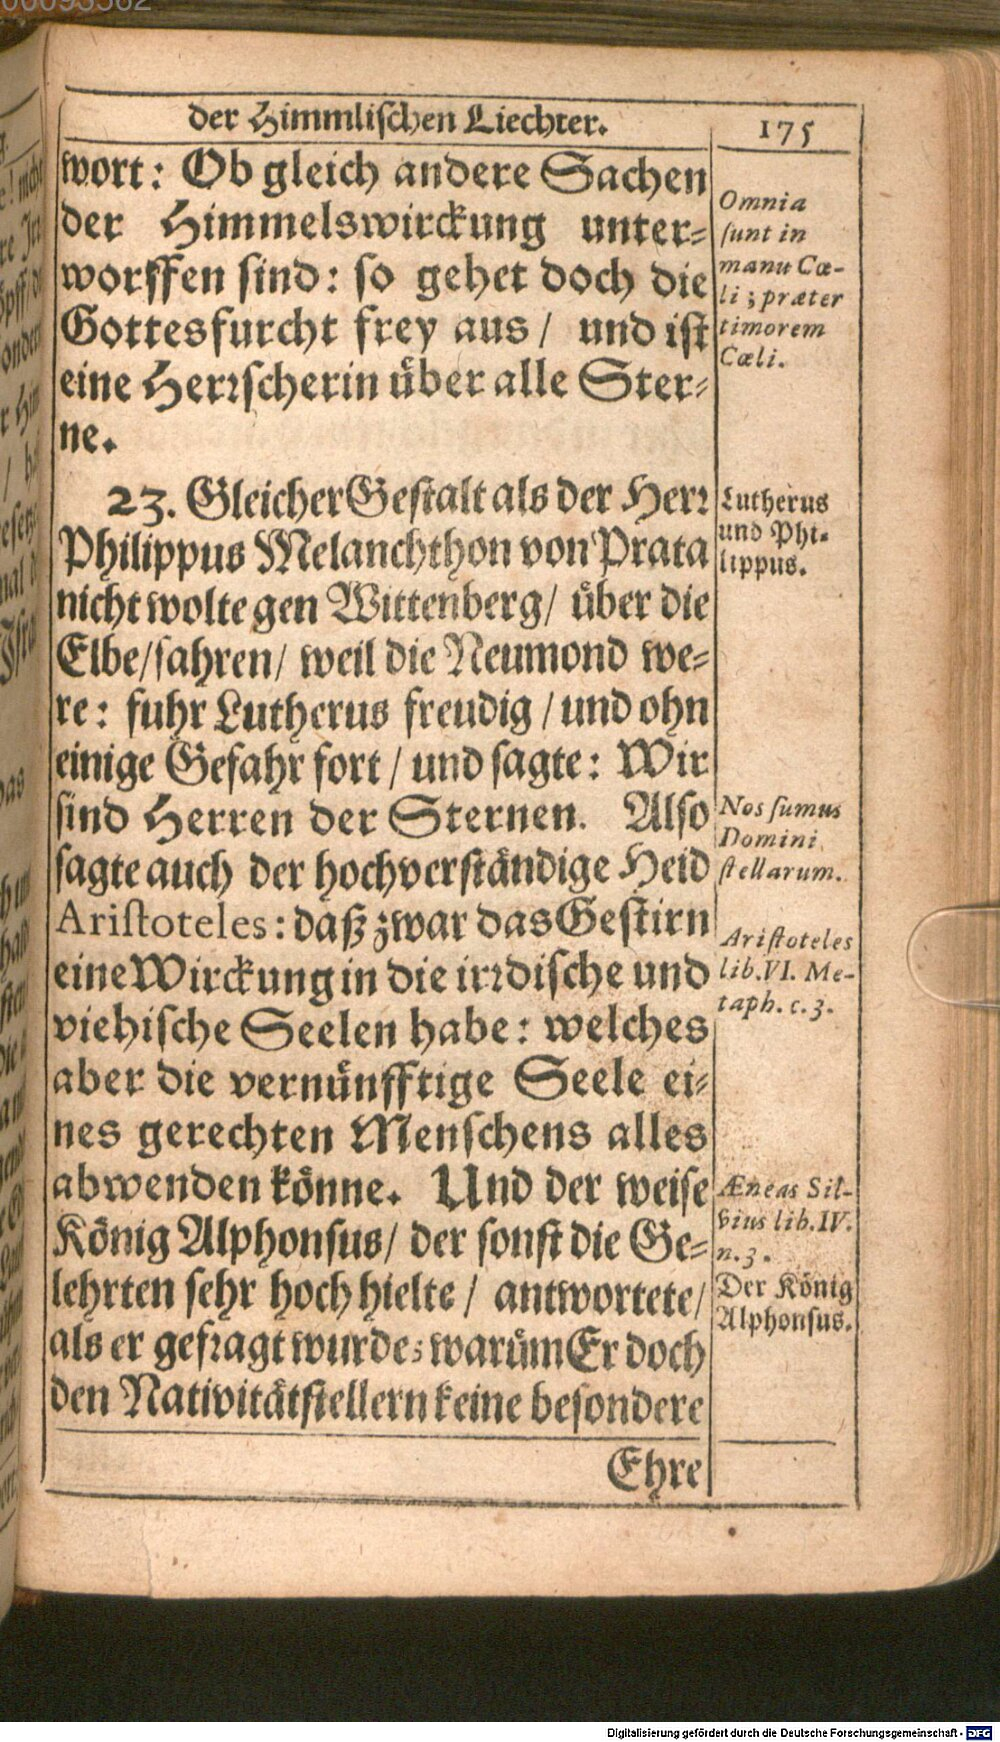 der Himmlischen Liechter.
175
wort: Ob gleich andere Sachen
der Himmelswirckung unter-
worffen sind: so gehet doch die
Gottesfurcht frey aus / und ist
eine Herrscherin über alle Ster-
ne.
23. Gleicher Gestalt als der Herr
Philippus Melanchthon von Prata
nicht wolte gen Wittenberg / über die
Elbe / fahren / weil die Neumond we-
re: fuhr Lutherus freudig / und ohn
einige Gefahr fort / und sagte: Wir
sind Herren der Sternen. Also
sagte auch der hochverständige Heid
Aristoteles: daß zwar das Gestirn
eine Wirckung in die irrdische und
viehische Seelen habe: welches
aber die vernünfftige Seele ei-
nes gerechten Menschens alles
abwenden könne. Und der weise
König Alphonsus / der sonst die Ge-
lehrten sehr hoch hielte / antwortete /
als er gefragt wurde; warům Er doch
den Nativitätstellern keine besondere
Ehre
Omnia
sunt in
manu Cœ-
li; præter
timorem
Cœli.
Lutherus
und Phi-
lippus.
Nos sumus
Domini
stellarum.
Aristoteles
lib. VI. Me-
taph. c. 3.
Æneas Sil-
vius lib. IV.
n. 3.
Der König
Alphonsus.
Digitalisierung gefördert durch die Deutsche Forschungsgemeinschaft - DFG